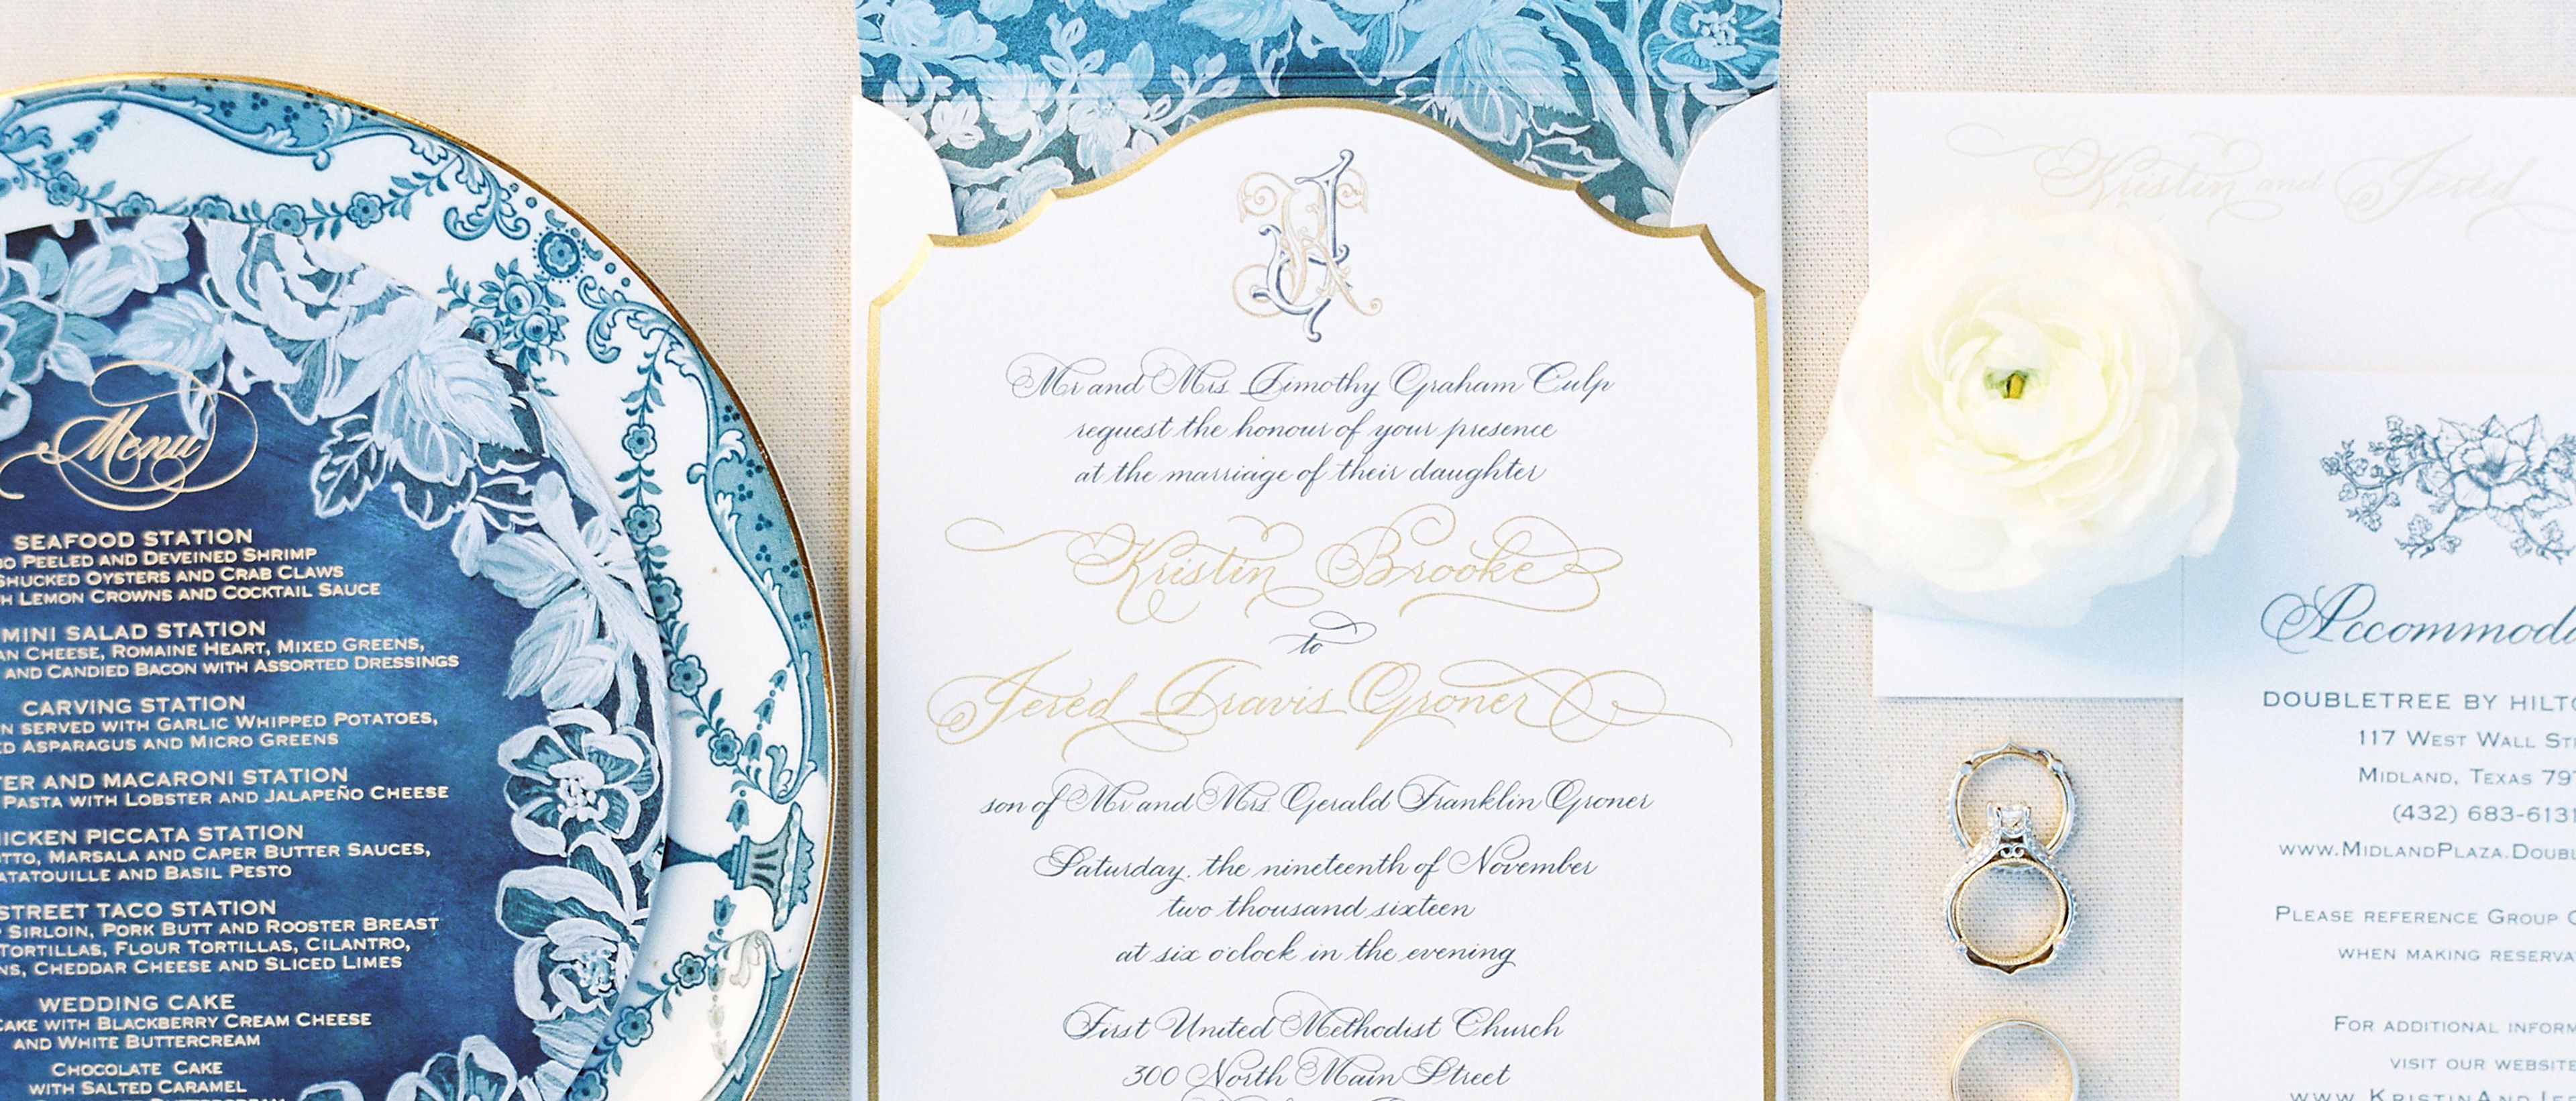 Menu
SEAFOOD STATION
PEELED AND DEVEINED SHRIMP
SHUCKED OYSTERS AND CRAB CLAWS
LEMON CROWNS AND COCKTAIL SAUCE
MINI SALAD STATION
CHEESE, ROMAINE HEART, MIXED GREENS,
AND CANDIED BACON WITH ASSORTED DRESSINGS
CARVING STATION
SERVED WITH GARLIC WHIPPED POTATOES,
ASPARAGUS AND MICRO GREENS
AND MACARONI STATION
PASTA WITH LOBSTER AND JALAPEÑO CHEESE
PICCATA STATION
MARSALA AND CAPER BUTTER SAUCES,
AND BASIL PESTO
STREET TACO STATION
SIRLOIN, PORK BUTT AND ROOSTER BREAST
TORTILLAS, FLOUR TORTILLAS, CILANTRO,
CHEDDAR CHEESE AND SLICED LIMES
WEDDING CAKE
CAKE WITH BLACKBERRY CREAM CHEESE
AND WHITE BUTTERCREAM
CHOCOLATE CAKE
WITH SALTED CARAMEL
Mr and Mrs Timothy Graham Culp
request the honour of your presence
at the marriage of their daughter
Kristin Brooke
to
Jered Travis Groner
son of Mr and Mrs Gerald Franklin Groner
Saturday, the nineteenth of November
two thousand sixteen
at six o'clock in the evening
First United Methodist Church
300 North Main Street
Kristin and Jered
DOUBLETREE BY
117 WEST WALL
MIDLAND, TEXAS
(432) 683-6131
PLEASE REFERENCE GROUP
WHEN MAKING
FOR ADDITIONAL
VISIT OUR WEBSITE